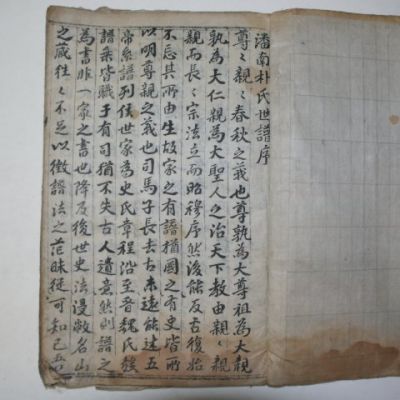 潘南朴氏世譜序
尊〻親〻春秋之義也尊孰為大尊祖為大親
孰為大仁親為大聖人之治天下教由親〻親
親而長〻宗法立而昭穆序然後能反古復始
不忘其所由生故家之有譜猶國之有史皆所
以明尊親之義也司馬子長去古未遠能述五
帝系譜列侯世家為史氏章程沿至晉魏氏族
譜乘皆職于有司猶不失古人遺意然則譜之
為書非一家之書也降及後世史法漫敝名山
之蔵往〻不足以徵譜法之茫昧從可知已吾